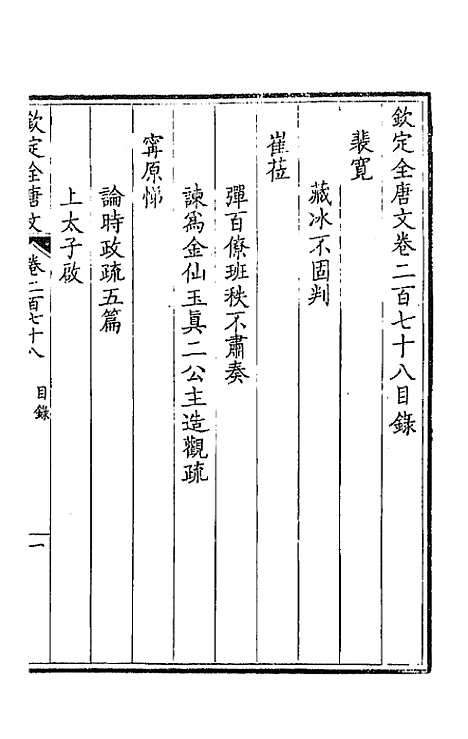 欽定全唐文卷二百七十八目錄
裴寬
藏冰不固判
崔莅
彈百僚班秩不肅奏
諫爲金仙玉眞二公主造觀疏
甯原悌
論時政疏五篇
上太子啟
欽定全唐文 卷二百七十八 目錄 一